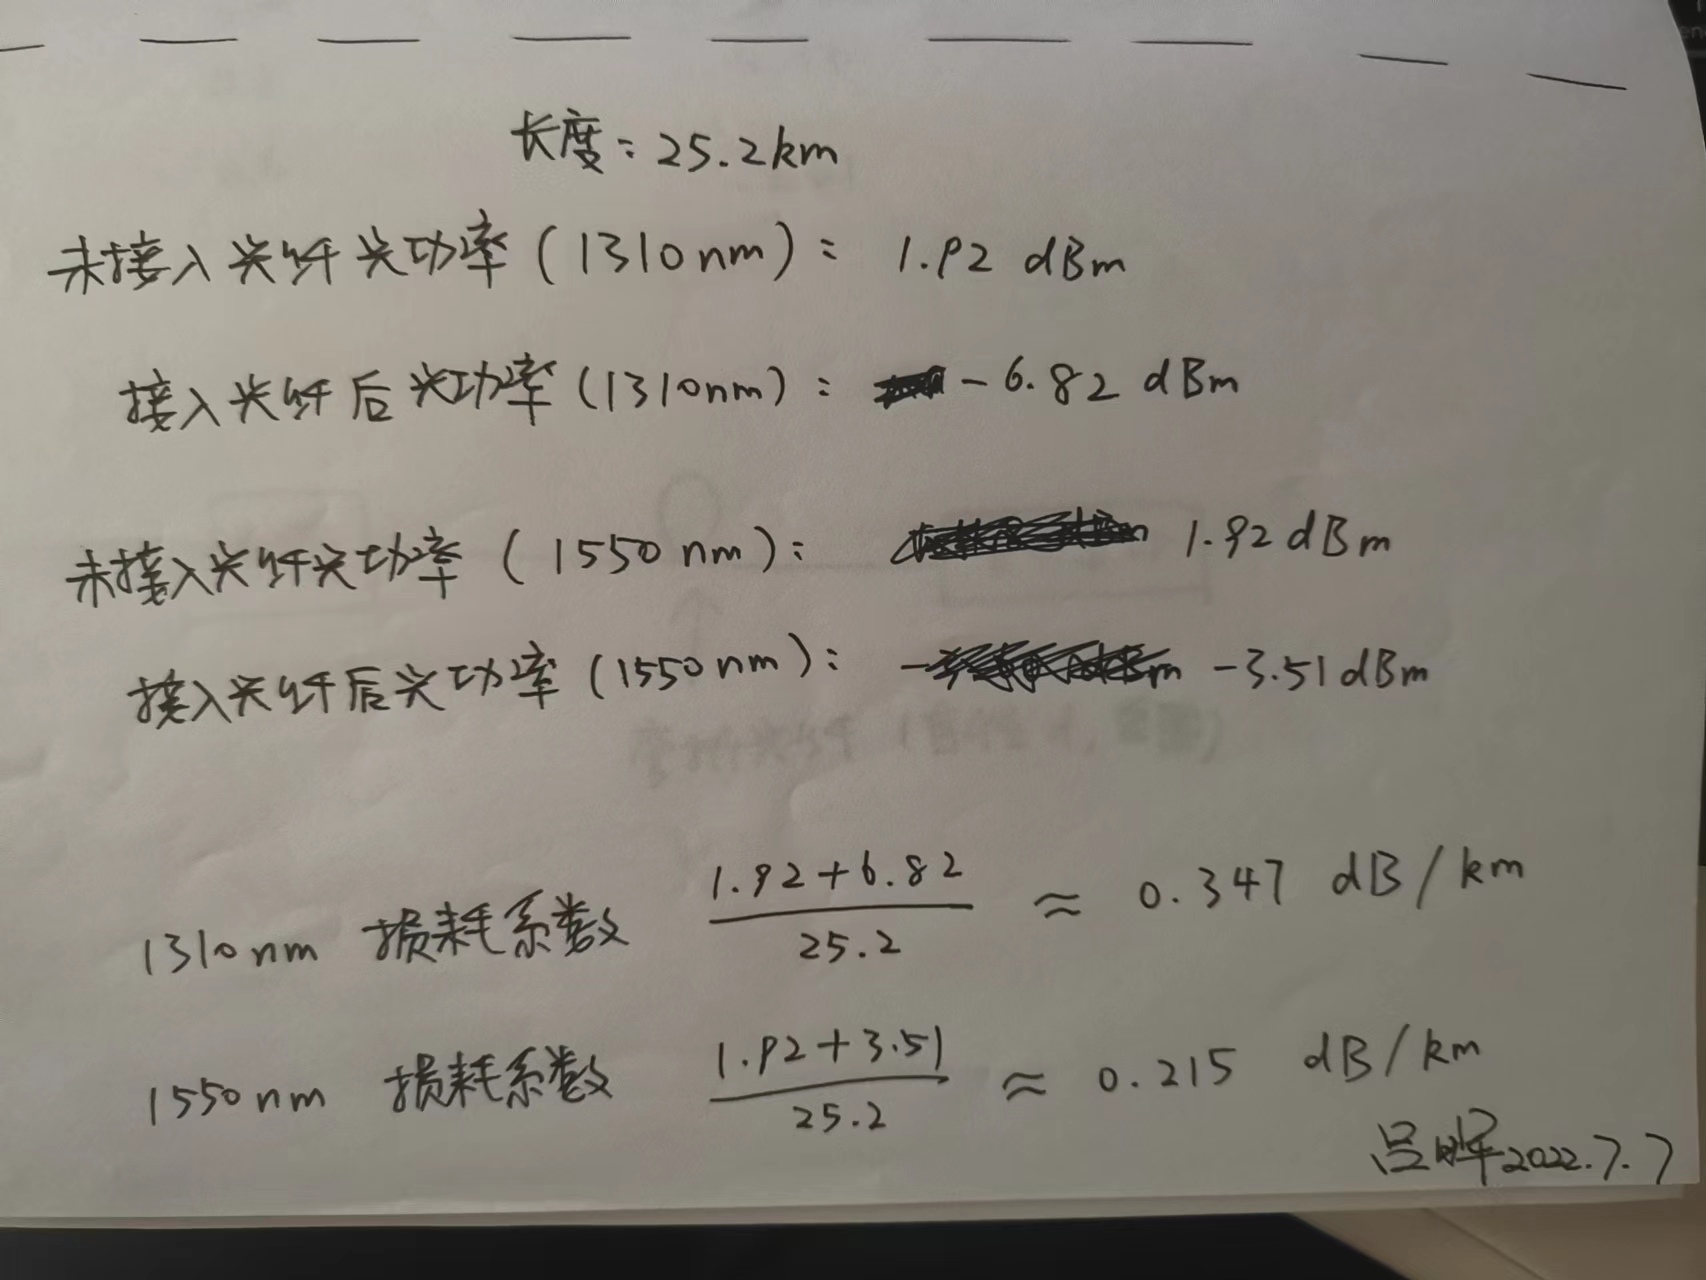 长度：25.2km
未接入光纤光功率(1310nm)： 1.92 dBm
接入光纤后光功率(1310nm)： -6.82 dBm
未接入光纤光功率(1550nm)： 1.92dBm
接入光纤后光功率(1550nm)： -3.51dBm
1310nm 损耗系数 1.92+6.82/25.2 ≈ 0.347 dB/km
1550nm 损耗系数 1.92+3.51/25.2 ≈ 0.215 dB/km
吕晖2022.7.7